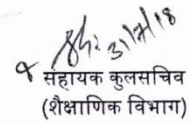 31/7/18
सहायक कुलसचिव
(शैक्षाणिक विभाग)